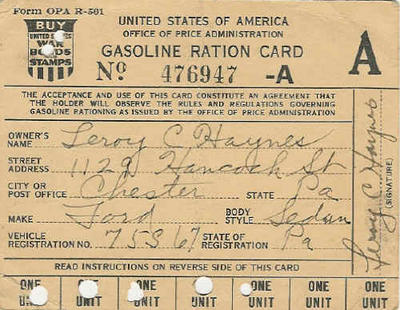 Form OPA R-501
BUY
UNITED STATES
WAR
BONDS
AND
STAMPS
UNITED STATES OF AMERICA
OFFICE OF PRICE ADMINISTRATION
GASOLINE RATION CARD
No 476947 -A
A
THE ACCEPTANCE AND USE OF THIS CARD CONSTITUTE AN AGREEMENT THAT
THE HOLDER WILL OBSERVE THE RULES AND REGULATIONS GOVERNING
GASOLINE RATIONING AS ISSUED BY THE OFFICE OF PRICE ADMINISTRATION
OWNER'S NAME Leroy C Haynes
STREET ADDRESS 1129 Hancock St
CITY OR POST OFFICE Chester STATE Pa
MAKE Ford BODY STYLE Sedan
VEHICLE REGISTRATION NO. 753 67 STATE OF REGISTRATION Pa
Leroy C Haynes
(SIGNATURE)
READ INSTRUCTIONS ON REVERSE SIDE OF THIS CARD
ONE UNIT ONE UNIT ONE UNIT ONE UNIT ONE UNIT ONE UNIT